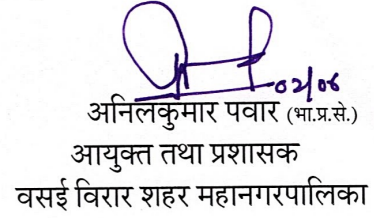 02/06
अनिलकुमार पवार (भा.प्र.से.)
आयुक्त तथा प्रशासक
वसई विरार शहर महानगरपालिका